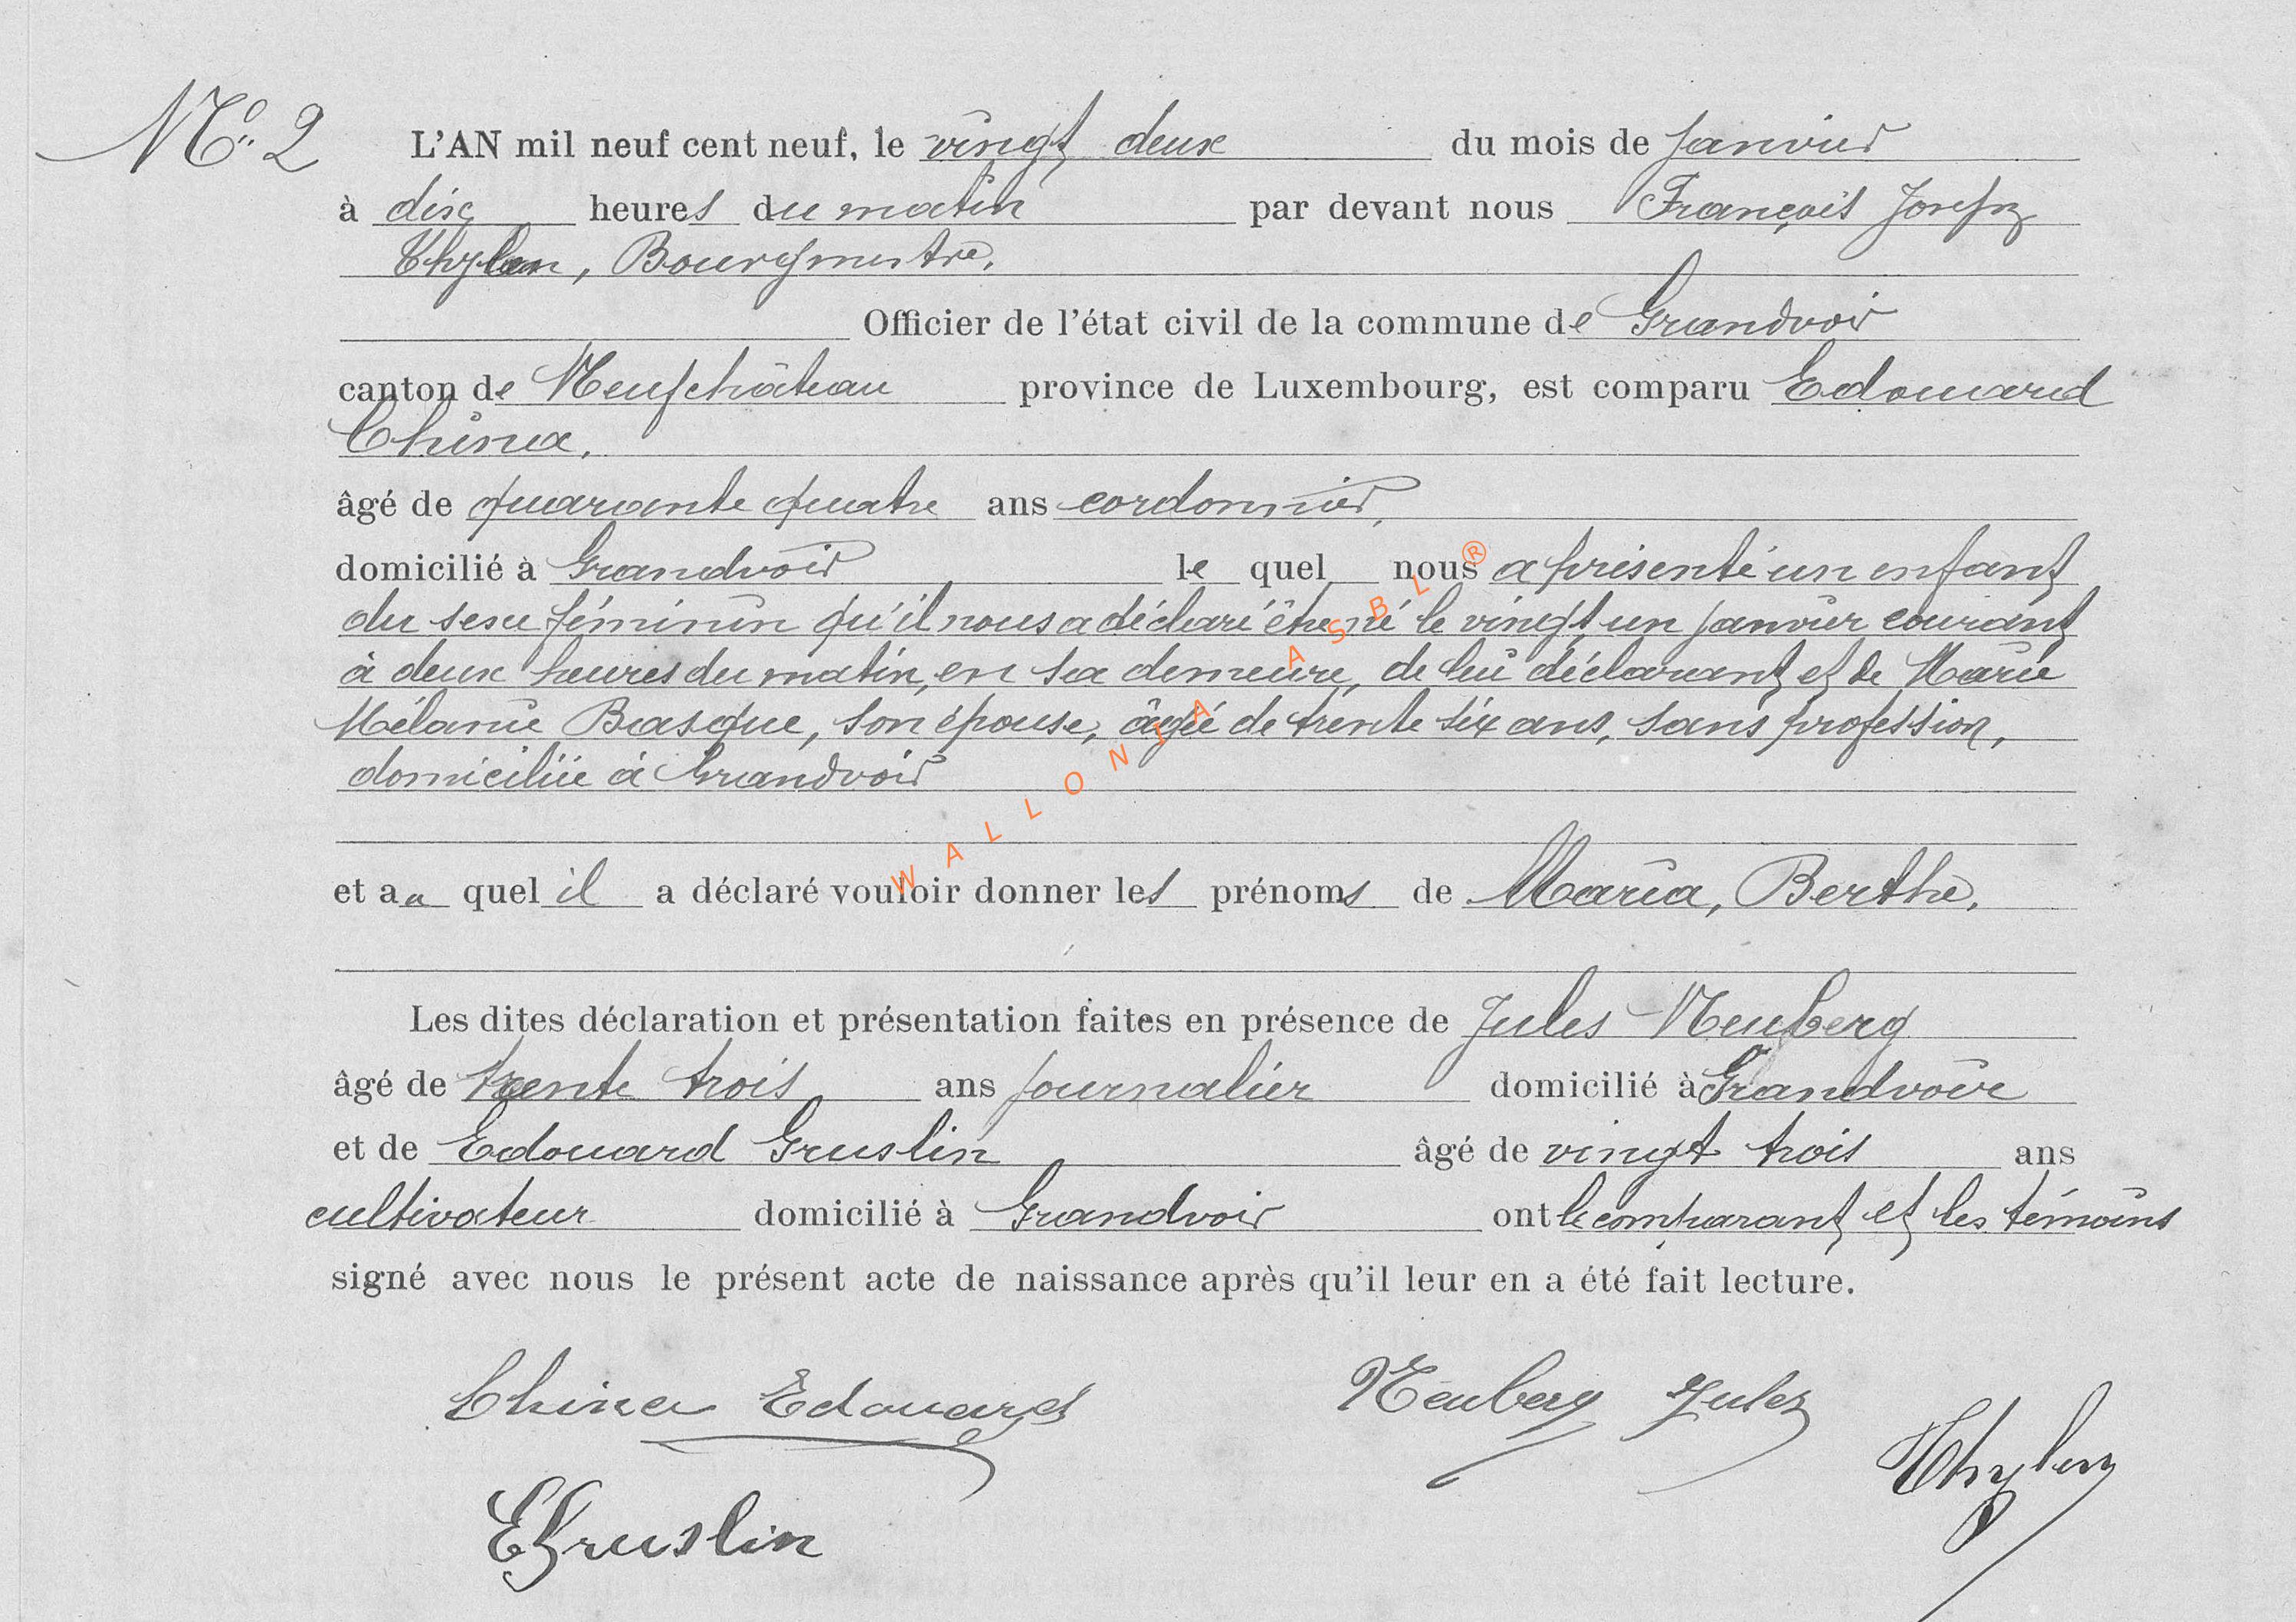 No. 2
L'AN mil neuf cent neuf, le vingt deux du mois de Janvier
à dix heures du matin par devant nous François Joseph
Thylen, Bourgmestre.
Officier de l'état civil de la commune de Grandvoir
canton de Neufchâteau province de Luxembourg, est comparu Edouard
China.
âgé de quarante quatre ans cordonnier,
domicilié à Grandvoir le quel nous a présenté un enfant
du sexe féminin qu'il nous a déclaré être né le vingt un janvier courant
à deux heures du matin, en sa demeure, de lui déclarant et de Marie
Mélanie Basque, son épouse, âgée de trente six ans, sans profession,
domiciliée à Grandvoir
WALLONIA ASBL ®
et au quel il a déclaré vouloir donner les prénoms de Maria, Berthe.
Les dites déclaration et présentation faites en présence de Jules Neuberg
âgé de trente trois ans journalier domicilié à Grandvoir
et de Edouard Gruslin âgé de vingt trois ans
cultivateur domicilié à Grandvoir ont le comparant et les témoins
signé avec nous le présent acte de naissance après qu'il leur en a été fait lecture.
China Edouard Neuberg Jules
Thylen
EGruslin